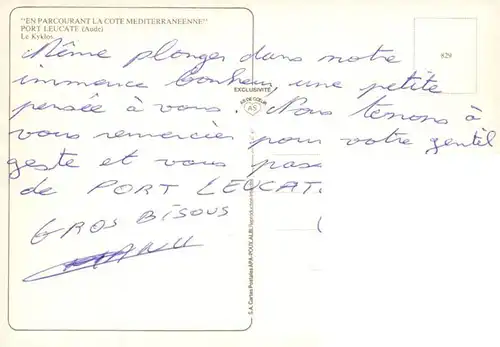 "EN PARCOURANT LA COTE MEDITERRANEENNE"
PORT LEUCATE (Aude)
Le Kyklos
829
Même plonger dans notre
immence bonheur, une petite
pensée à vous. Nous tenons à
vous remercier pour votre gentil
geste et vous pas
de PORT LEUCAT.
GROS BISOUS
MANU
EXCLUSIVITÉ
AS DE CŒUR
AS
S.A. Cartes Postales APA-POUX, ALBI